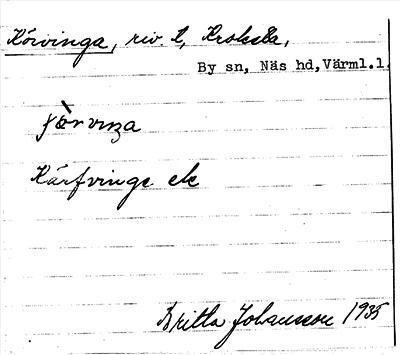 Körvinga, riv. t, Krokstia,
By sn, Näs hd,Värml.l.
Kärfvinge ek
Britta Johansson 1935